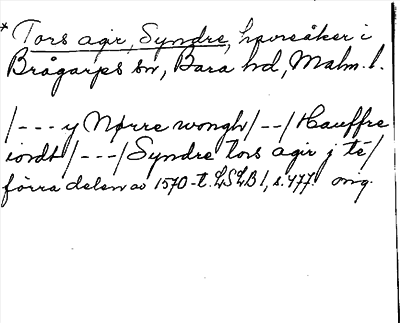 * Tors agir, Syndre, havreåker i
Brågarps sn, Bara hd, Malm. l.
/--- y Nørre wongh/--/Hauffre
iordt/---/Syndre tors agir j té/
förra delen av 1570-t. LSLB 1, s. 477. orig.